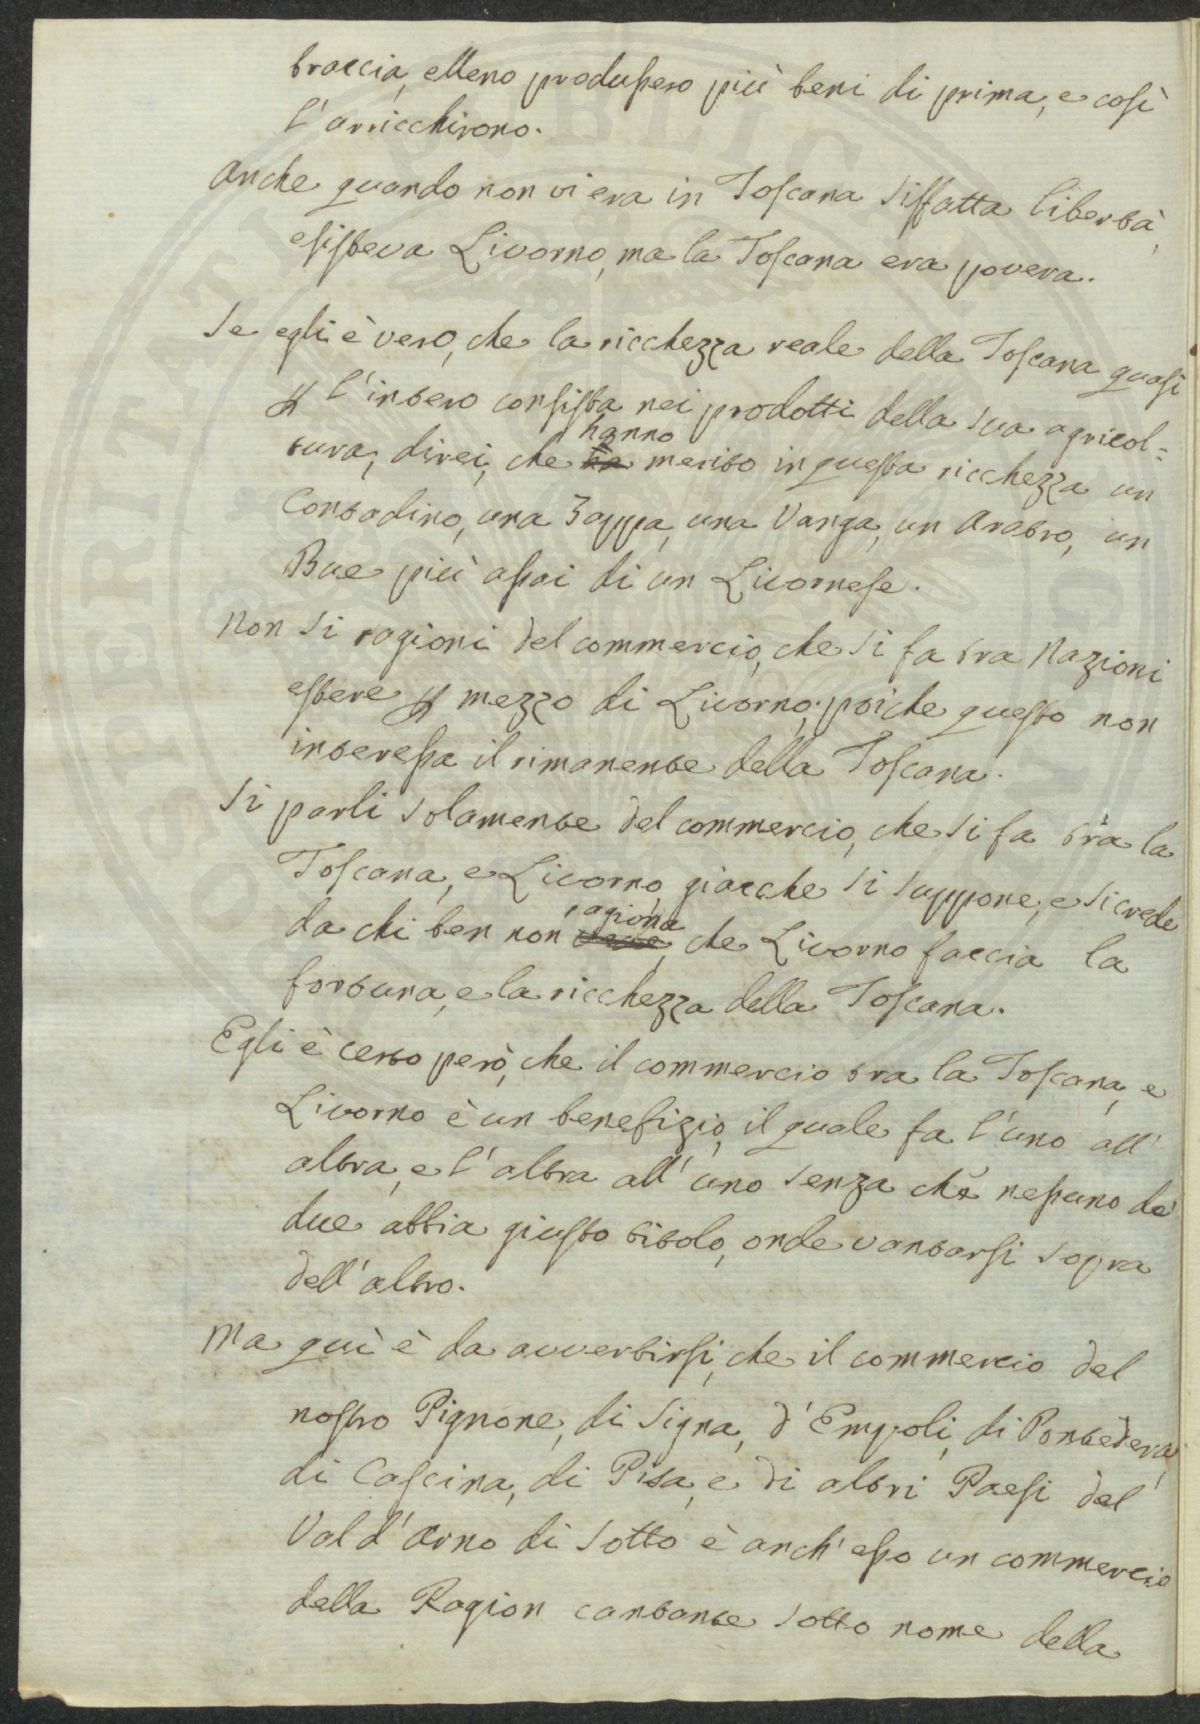 braccia, elleno produssero più beni di prima, e così
l'arricchirono.
Anche quando non vi era in Toscana siffatta libertà,
esisteva Livorno, ma la Toscana era povera.
Se egli è vero, che la ricchezza reale della Toscana quasi
p l'intero consista nei prodotti della sua agricol=
tura, direi, che ha hanno merito in questa ricchezza un
Contadino, una Zappa, una Vanga, un Aratro, un
Bue più assai di un Livornese.
Non si ragioni del commercio, che si fa tra Nazioni
estere p mezzo di Livorno; poiche questo non
interessa il rimanente della Toscana.
Si parli solamente del commercio, che si fa tra la
Toscana, e Livorno giacche si suppone, e si crede
da chi ben non ragiona, che Livorno faccia la
fortuna, e la ricchezza della Toscana.
Egli è certo però, che il commercio tra la Toscana, e
Livorno è un benefizio, il quale fa l'uno all'
altra, e l'altra all'uno senza che nessuno de'
due abbia giusto titolo, onde vantarsi sopra
dell'altro.
Ma quì è da avvertirsi, che il commercio del
nostro Pignone, di Signa, d'Empoli, di Pontedera,
di Cascina, di Pisa, e di altri Paesi del
Val d'Arno di Sotto è anch'esso un commercio
della Ragion cantante sotto nome della